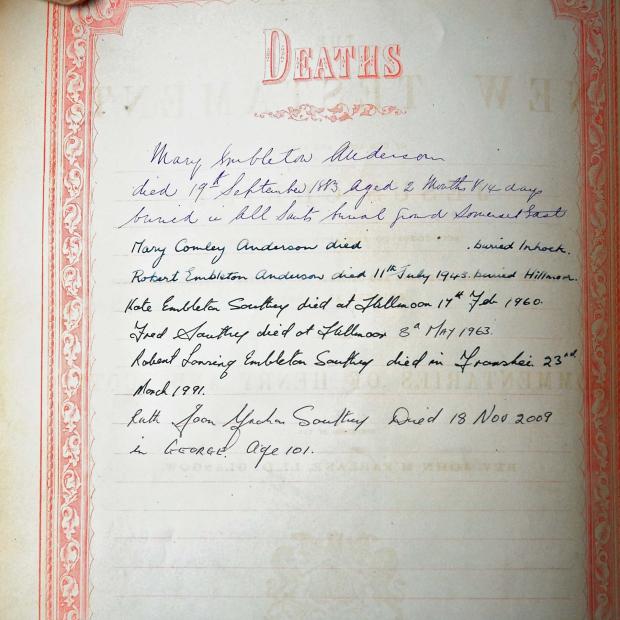 DEATHS
Mary Embleton Anderson
died 19th September 1883 Aged 2 Months & 14 days
buried in All Saints burial ground Somerset East
Mary Comley Anderson died . buried Inhoek.
Robert Embleton Anderson died 11th July 1943. buried Hillmoor.
Kate Embleton Southey died at Hillmoor 17th Feb 1960.
Fred Southey died at Hillmoor 8th MAY 1963.
Robert Embleton Southey died in Transkei 23rd
March 1991.
Ruth Joan Southey Died 18 NOV 2009
in GEORGE. Age 101.